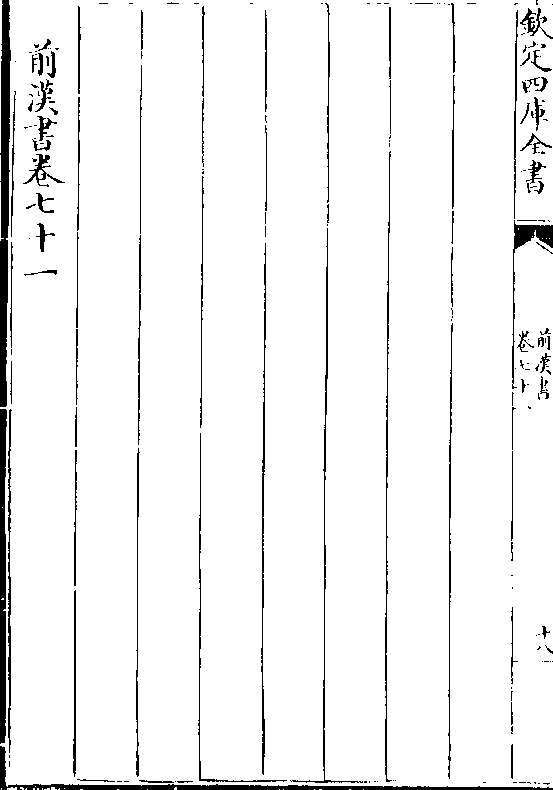 欽定四庫全書
前漢書
卷七十一
十八
前漢書卷七十一